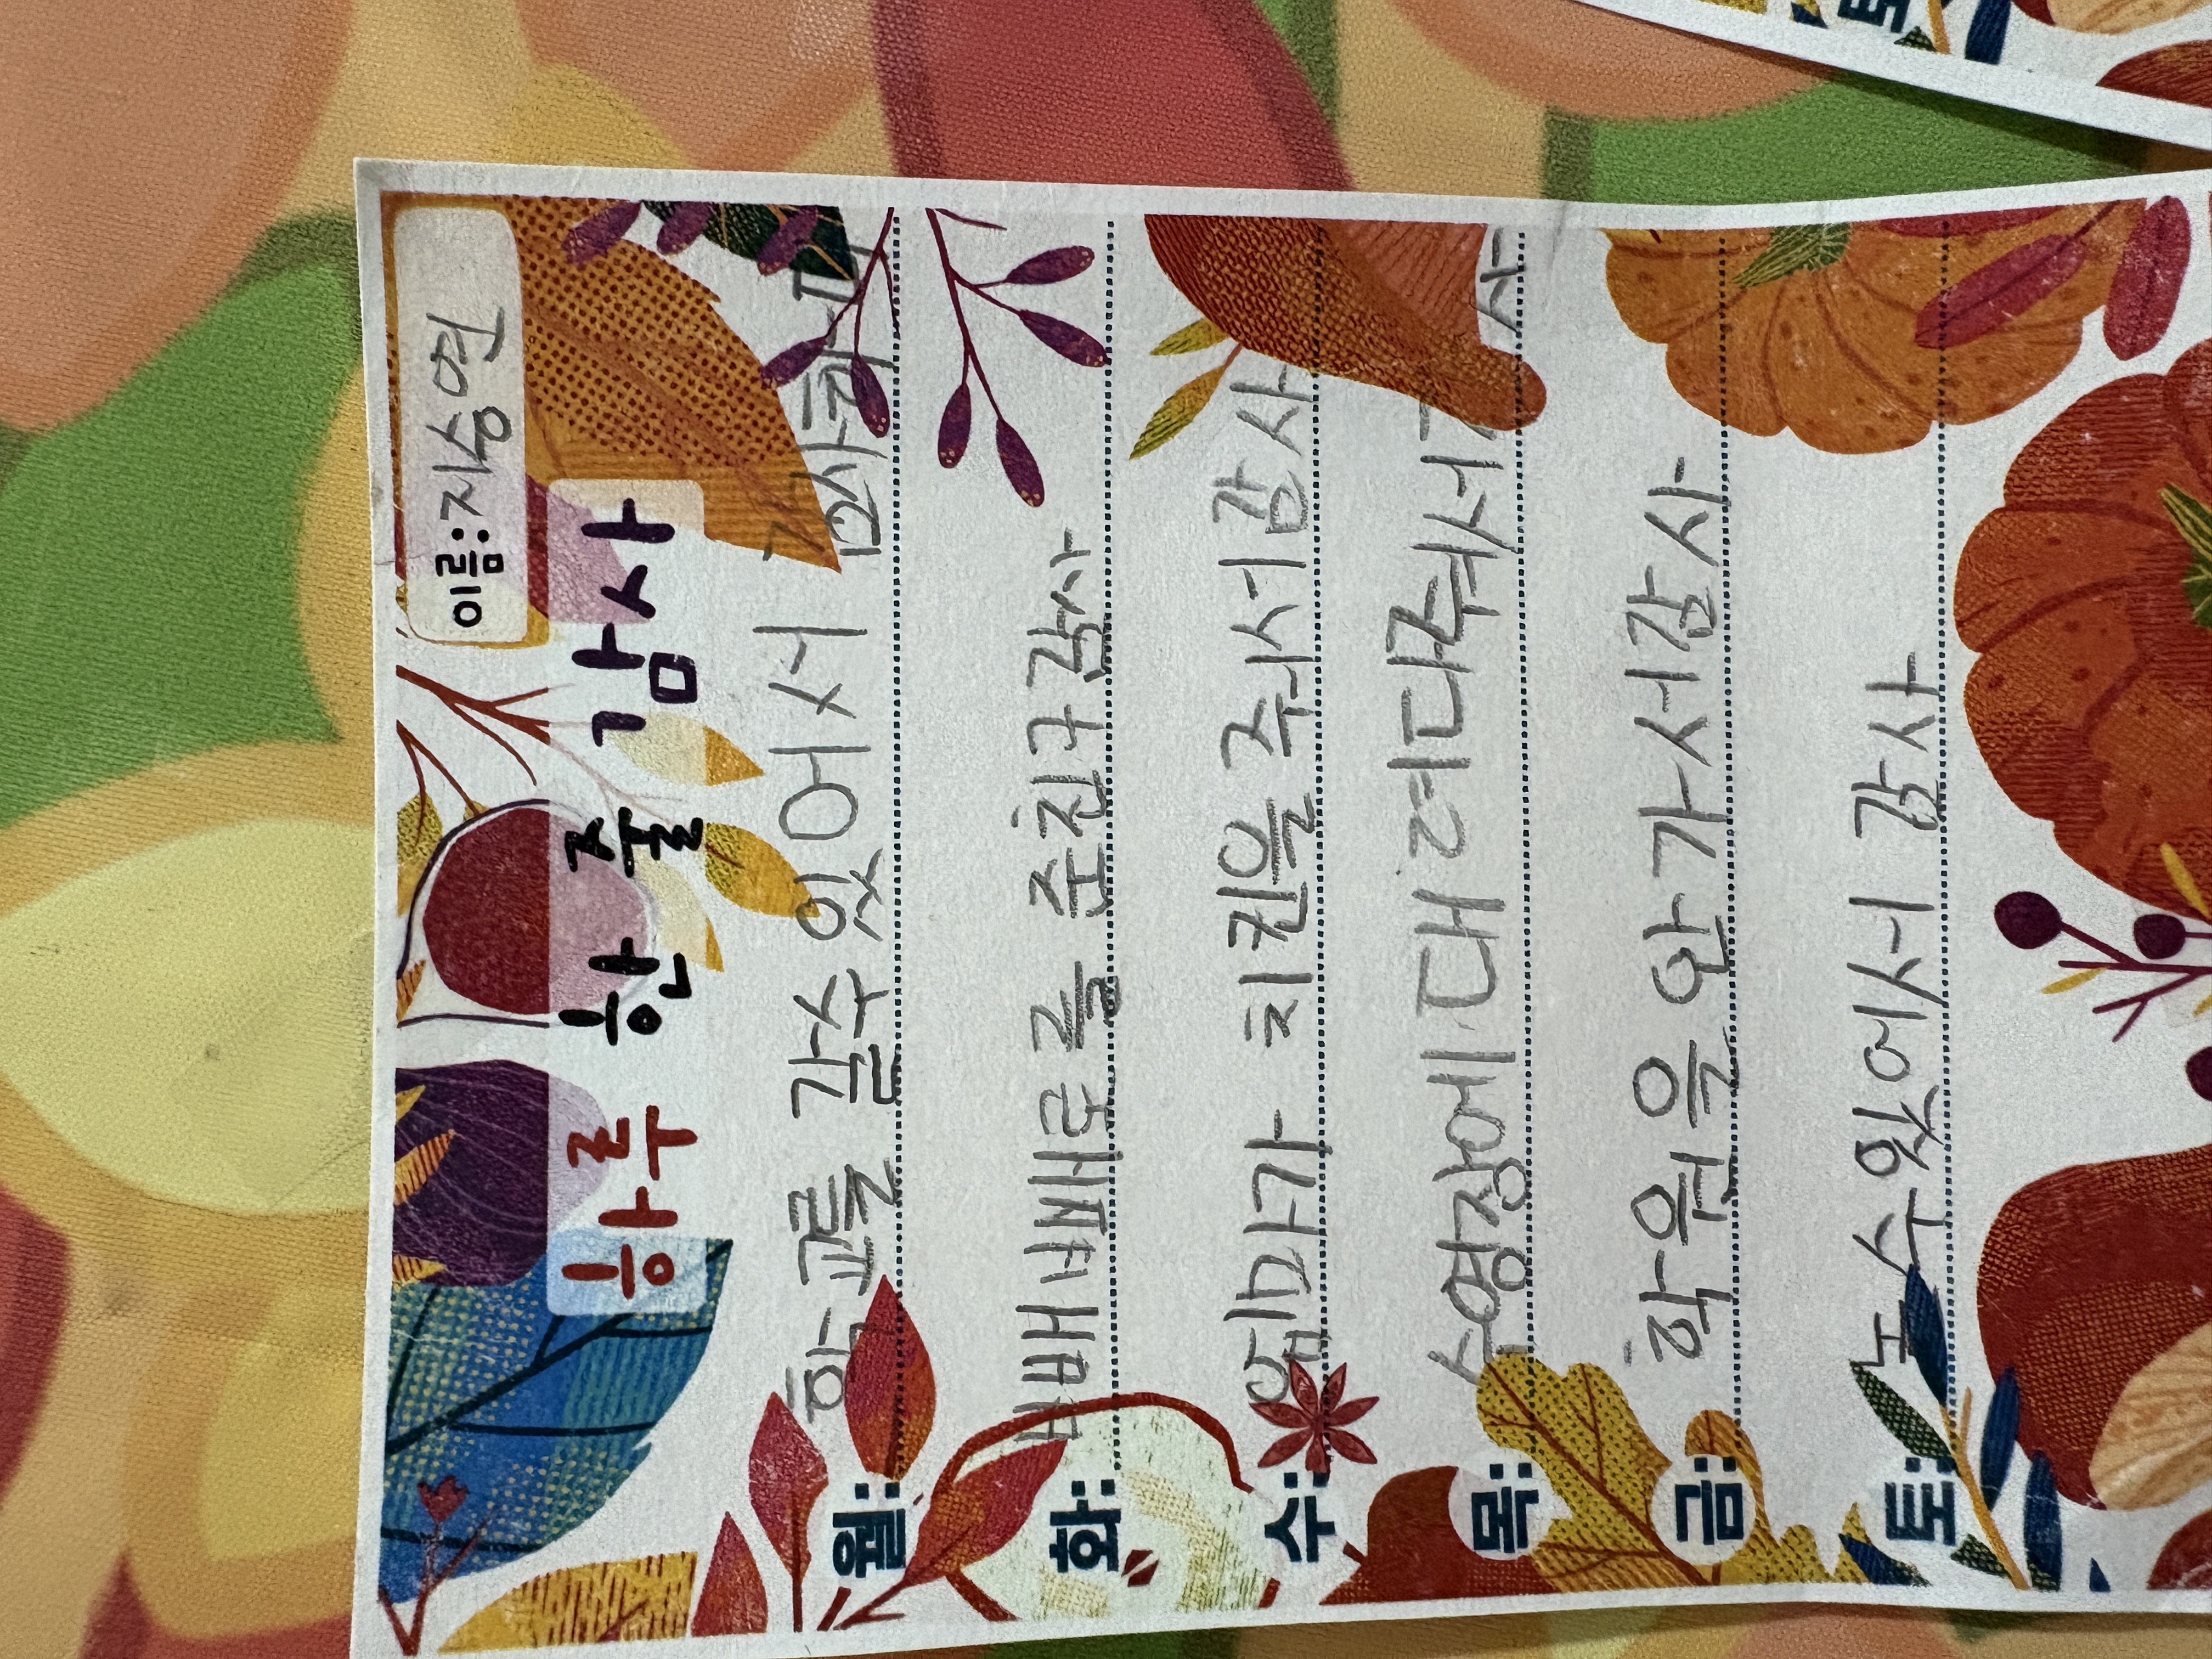 이름: 지승연
하루 한 줄 감사
월: 학교를 갈수있어서 감사합니다
화: 빼빼로를 준친구감사
수: 엄마가 치킨을 주서감사
목: 수영장에 대려다줘서감사
금: 학원을 안가서감사
토: 노수있어서 감사
토